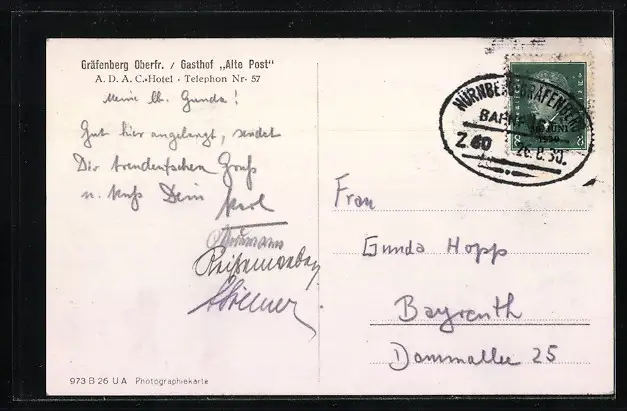 Gräfenberg Oberfr. / Gasthof „Alte Post"
A. D. A. C.-Hotel · Telephon Nr. 57
Meine lb. Gunda!
Gut hier angelangt, sendet
Dir treudeutschen Gruß
u. Kuß Dein Karl
NÜRNBERG-GRÄFENBERG
BAHNPOST
Z. 60
26.8.30.
30. JUNI
1930
Frau
Gunda Hopp
Bayreuth
Dammallee 25
973 B 26 U A Photographiekarte